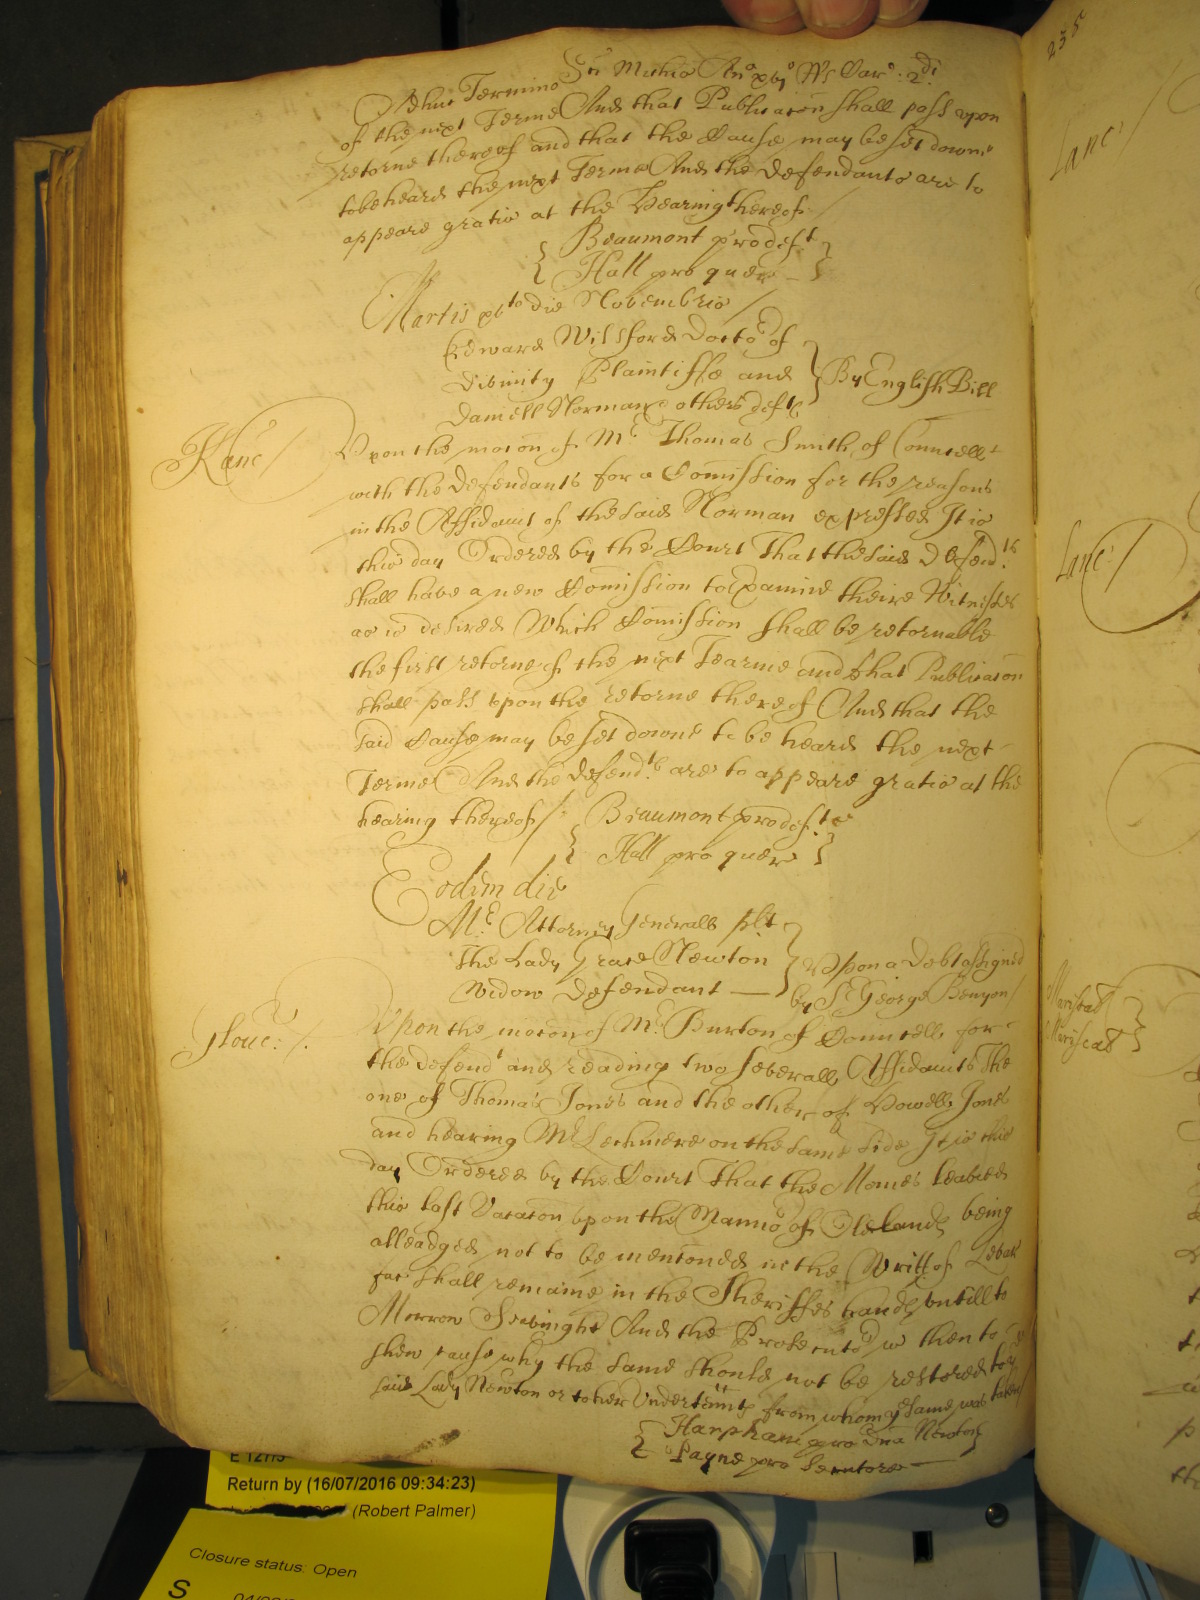 Adhuc Termino Sci Mich̄is Anº xvjº Rs Carˡ: 2di
of the next Terme And that Publicac̄on shall pass vpon
retorne thereof and that the Cause may be set downe
to be heard the next Terme And the defendants are to
appeare gratis at the Hearing thereof
Beaumont pro defᵗ
Hall pro quer
Martis xvᵗᵒ die Novembris
Edward Willsford Doctoʳ of
Divinity Plaintiffe and
Daniell Norman & others defᵗˢ
By English Bill
Kanc /
Vpon the moc̄on of Mʳ Thomas Smith of Councell
with the defendants for a Com̄ission for the reasons
in the Affidavit of the said Norman expressed It is
this day Ordered by the Court That the said Defendᵗˢ
shall have a new Com̄ission to Examine theire Witnesses
as is desired Which Com̄ission shall be retornable
the first retorne of the next Tearme and that Publicac̄on
shall pass vpon the retorne thereof And that the
said Cause may be set downe to be heard the next
Terme And the defendᵗˢ are to appeare gratis at the
hearing thereof /
Beaumont pro defᵗˢ
Hall pro quer
Eodem die
Mʳ Attorney Generall plt
The Lady Grace Newton
Widow defendant
Vpon a Debt assigned
by Sʳ George Benyon /
Glouc: /.
Vpon the moc̄on of Mʳ Burton of Councell for
the defendᵗ and reading two severall Affidavits The
one of Thomas Jones and the other of Howell Jones
and hearing Mʳ Lechmere on the same side It is this
day Ordered by the Court That the Monies leavied
this last Vacac̄on vpon the Mannoʳ of being
alleadged not to be menc̄oned in the Writt of Levar
fac: shall remaine in the Sheriffes hands vntill to
Morrow Sevinight And the Prosecutoʳ is then to
shew cause why the same should not be restored to yᵉ
said Lady Newton or to her Vndertēnts from whom yᵉ same was taken /
Harpham pro Dn̄a Newton
Payne pro
235
Lanc /
Lanc: /
E 127/5
Return by (16/07/2016 09:34:23)
(Robert Palmer)
Closure status: Open
S